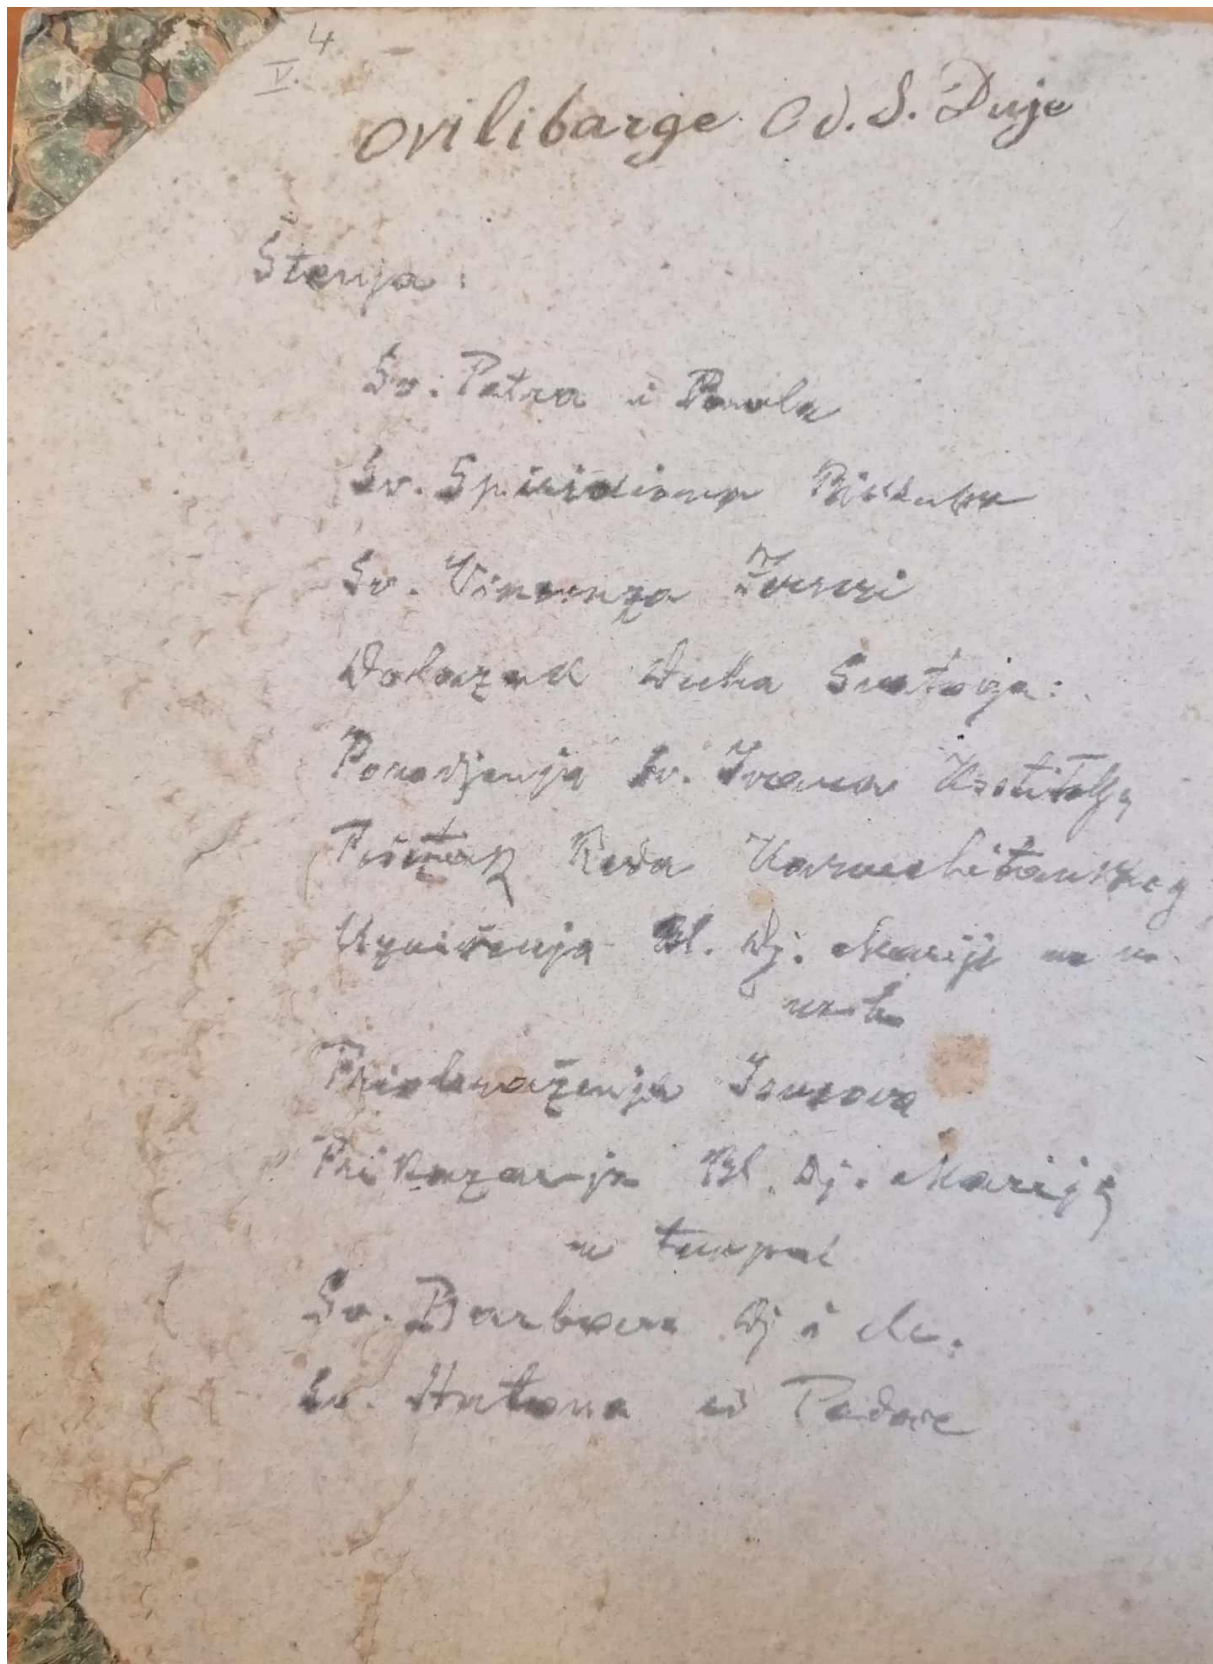 4
V.
ovilibarge Od. S. Duje
Štenja:
Sv. Petra i Pavla
Sv. Spiridiona Biskupa
Sv. Vincenza Fereri
Dolazak Duha Svetoga:
Porodjenja Sv. Ivana Krstitelja
Početak Reda Karmelitanskog
Uznešenja Bl. Dj. Marije na
Priobraženja Isusova
Prikazanja Bl. Dj. Marije
u
Sv. Barbare Dj i M.
Sv. Antona od Padove